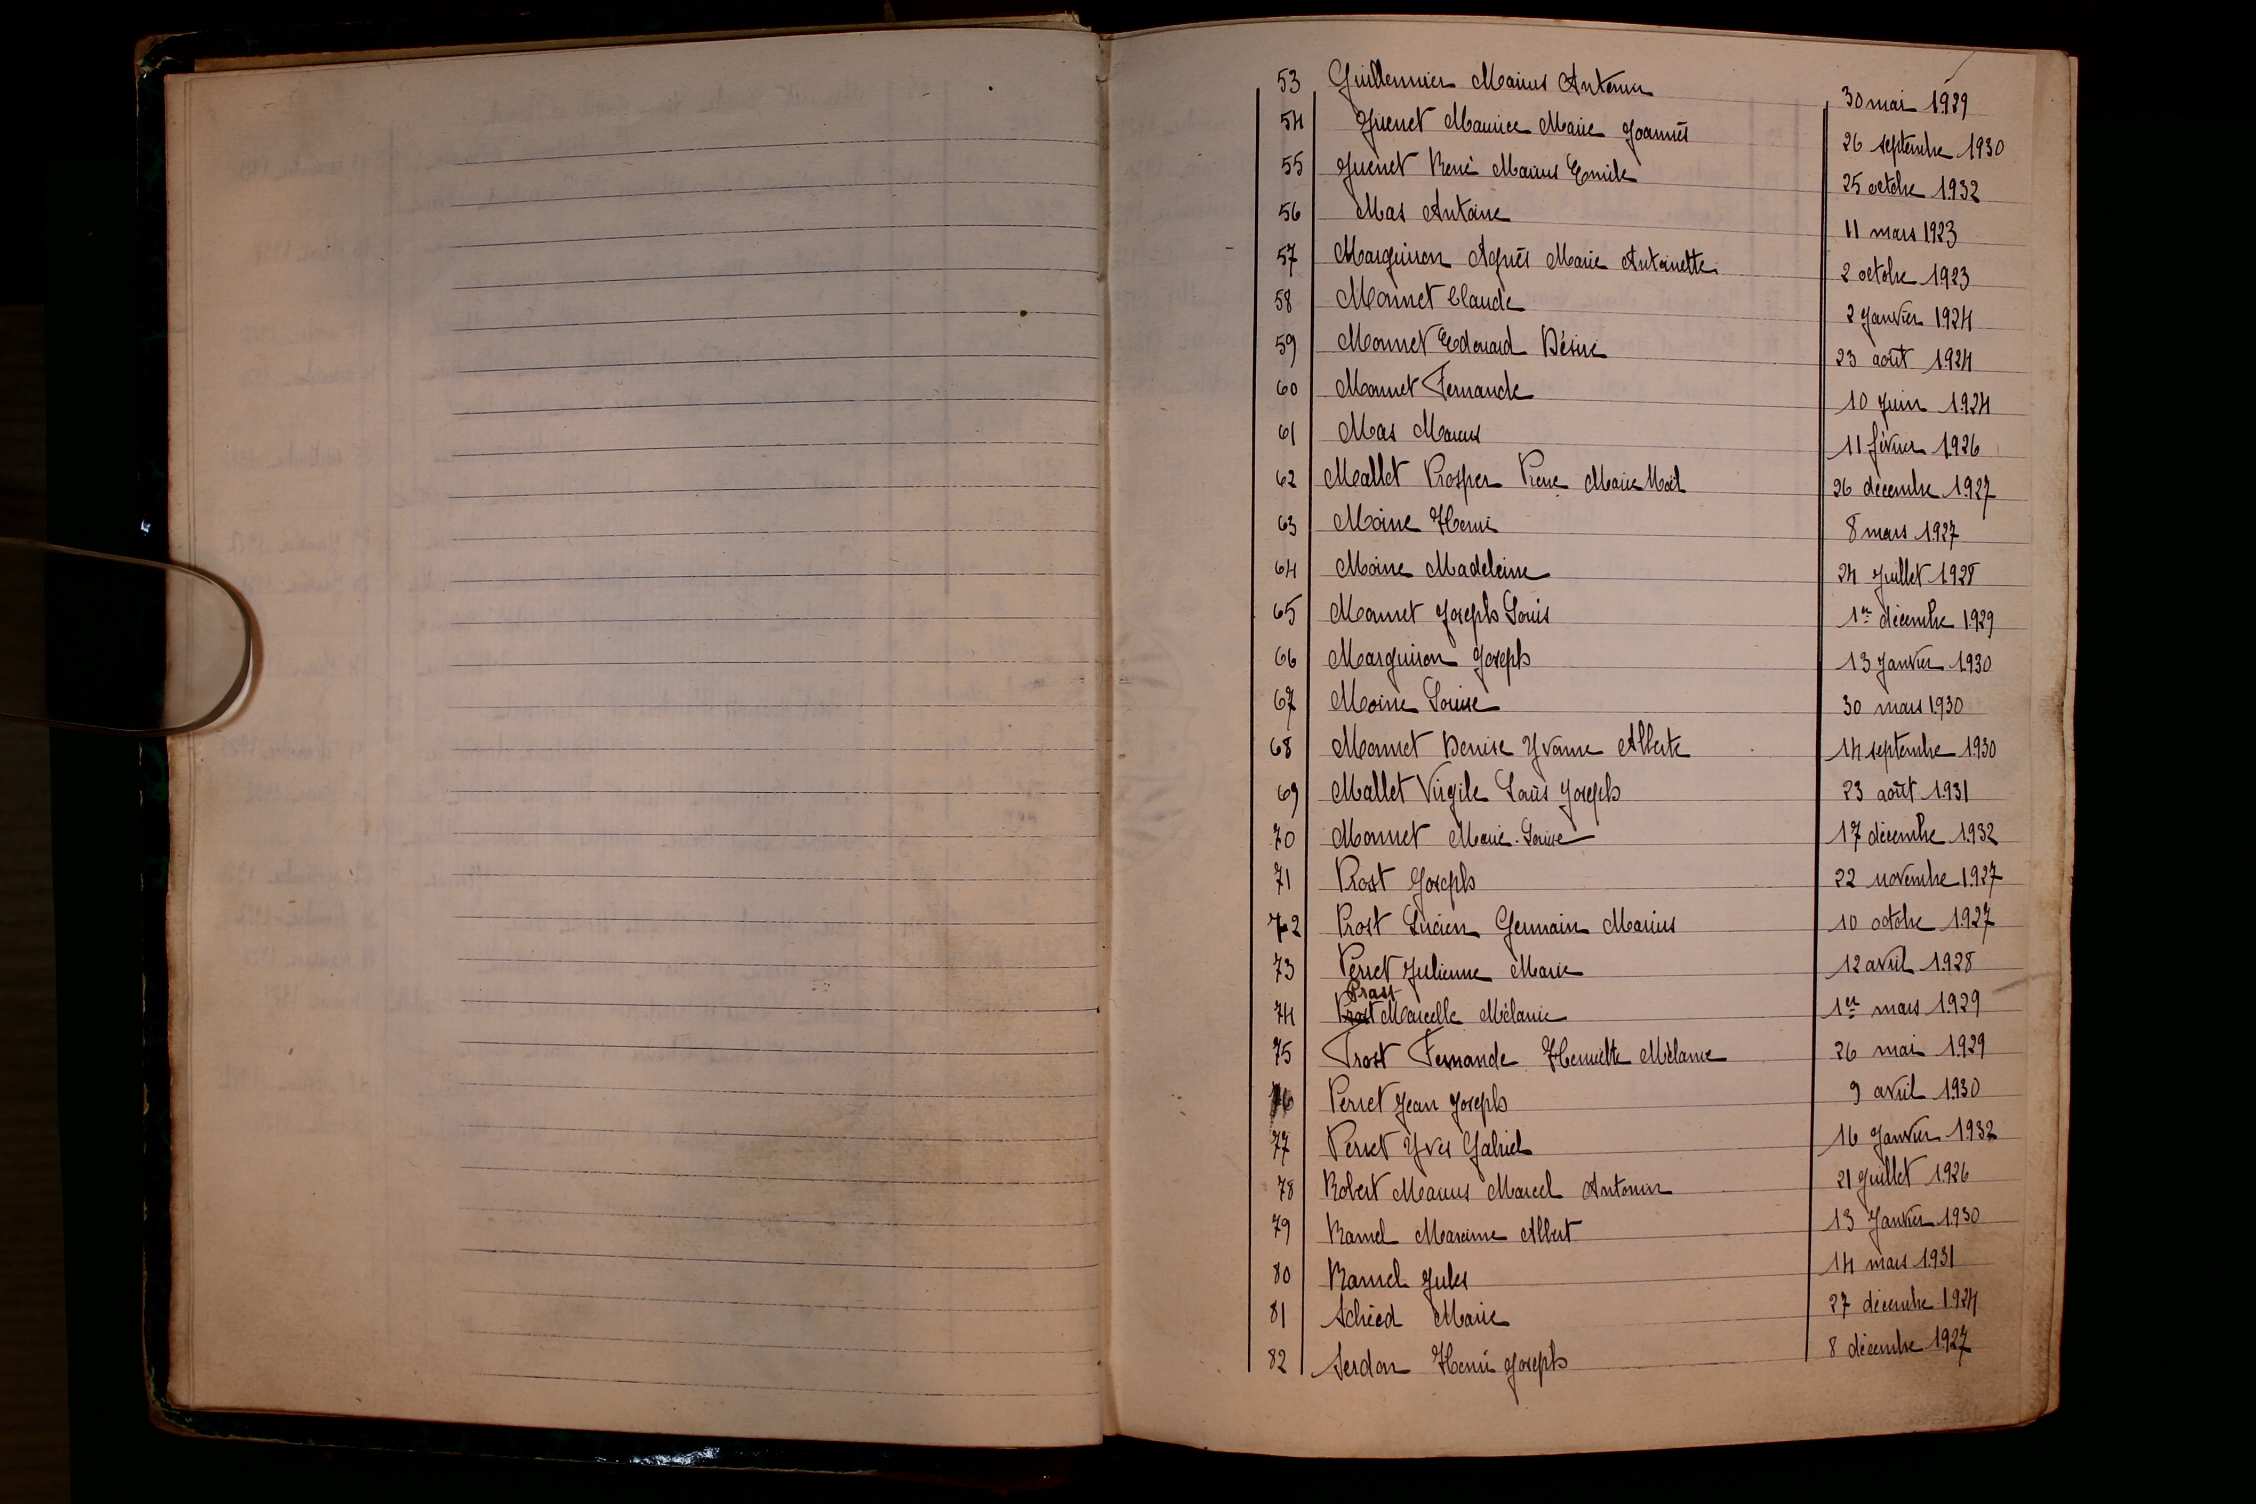 53 Guillermier Marius Antonin 30 mai 1929
54 Guenet Maurice Marie Joannès 26 septembre 1930
55 Guenet René Marius Emile 25 octobre 1932
56 Mas Antoine 11 mars 1923
57 Marguiron Agnès Marie Antoinette 2 octobre 1923
58 Monnet Claude 2 Janvier 1924
59 Monnet Edouard Désiré 23 août 1924
60 Monnet Fernande 10 Juin 1924
61 Mas Marius 11 février 1926
62 Mallet Prosper Pierre Marie Noël 26 décembre 1927
63 Moine Henri 8 mars 1927
64 Moine Madeleine 24 Juillet 1928
65 Monnet Joseph Louis 1er décembre 1929
66 Marguiron Joseph 13 Janvier 1930
67 Moine Louise 30 mars 1930
68 Monnet Denise Yvonne Alberte 14 septembre 1930
69 Mallet Virgile Louis Joseph 23 août 1931
70 Monnet Marie-Louise 17 décembre 1932
71 Prost Joseph 22 novembre 1927
72 Prost Lucien Germain Marius 10 octobre 1927
73 Perret Julienne Marie 12 avril 1928
Prast
74 Prost Marcelle Mélanie 1er mars 1929
75 Prost Fernande Henriette Mélanie 26 mai 1929
76 Perret Jean Joseph 9 avril 1930
77 Perret Yves Gabriel 16 Janvier 1932
78 Robert Marius Marcel Antonin 21 Juillet 1926
79 Ramel Maxime Albert 13 Janvier 1930
80 Ramel Jules 14 mars 1931
81 Schied Marie 27 décembre 1924
82 Serdon Henri Joseph 8 décembre 1927